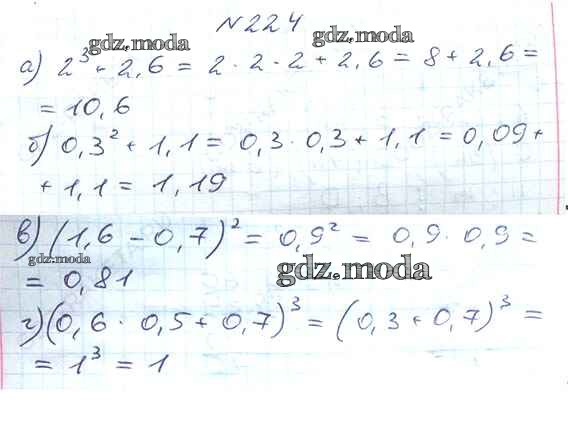 №224
gdz.moda
gdz.moda
а) 2³ + 2,6 = 2 · 2 · 2 + 2,6 = 8 + 2,6 =
= 10,6
б) 0,3² + 1,1 = 0,3 · 0,3 + 1,1 = 0,09 +
+ 1,1 = 1,19
в) (1,6 - 0,7)² = 0,9² = 0,9 · 0,9 =
= 0,81
gdz.moda
gdz.moda
г) (0,6 · 0,5 + 0,7)³ = (0,3 + 0,7)³ =
= 1³ = 1